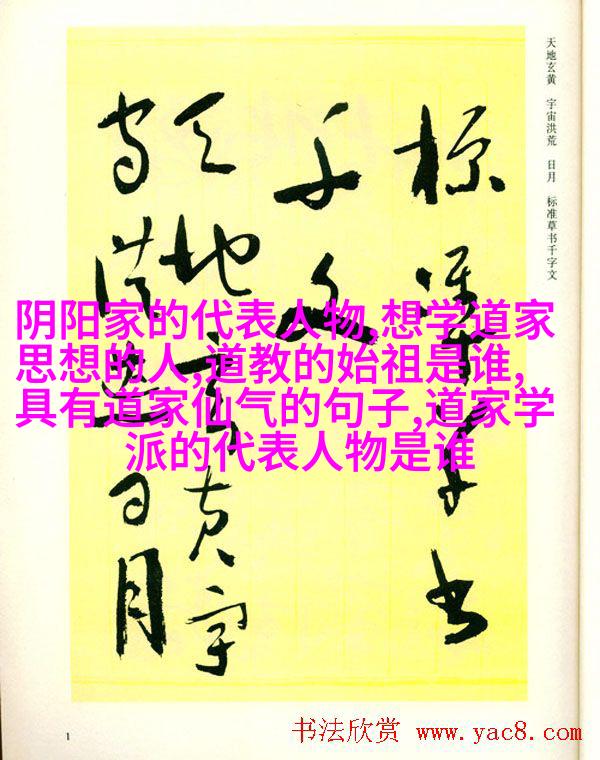 天地玄黄 宇宙洪荒 日月 标准草书千字文
标准草书
千文
天地玄黄宇
宙洪荒日月
阴阳家的代表人物,想学道家
思想的人,道教的始祖是谁,
具有道家仙气的句子,道家学
派的代表人物是谁
1
书法欣赏 www.yac8.com